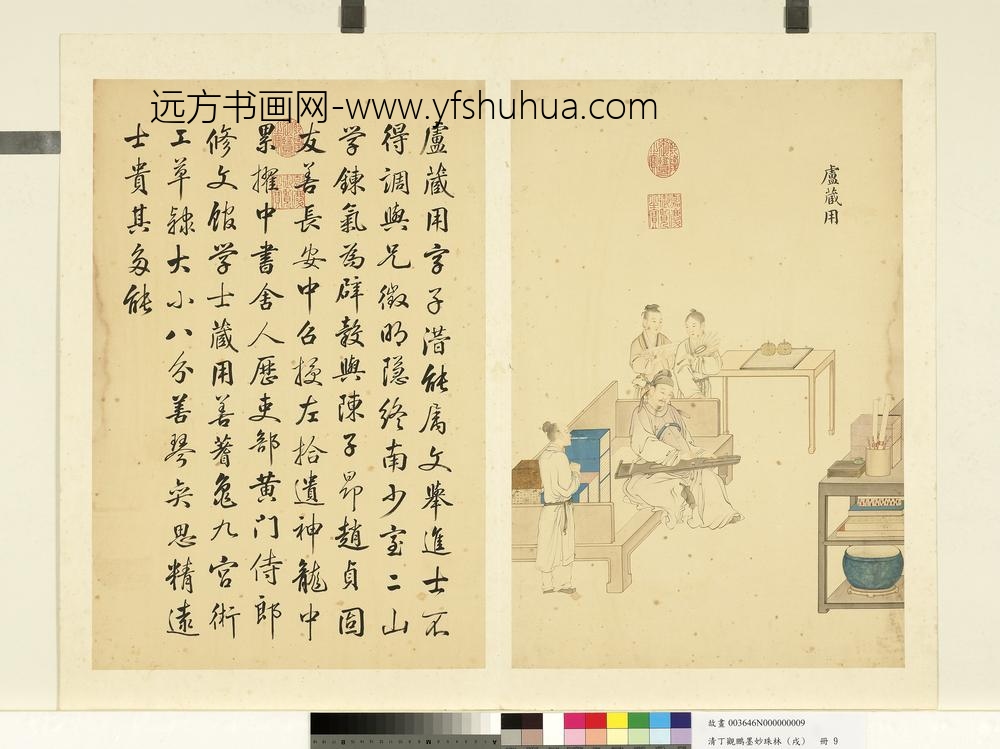 远方书画网-www.yfshuhua.com
盧藏用
盧藏用字子潛能属文舉進士不
得調與兄徵明隐終南少室二山
学鍊氣為辟穀與陳子昂趙貞固
友善長安中召授左拾遺神龍中
累擢中書舍人歷吏部黄门侍郎
修文館学士藏用善蓍龜九宫術
工草隸大小八分善琴弈思精遠
士貴其多能
故畫 003646N000000009
清丁觀鵬墨妙珠林（戌） 冊 9